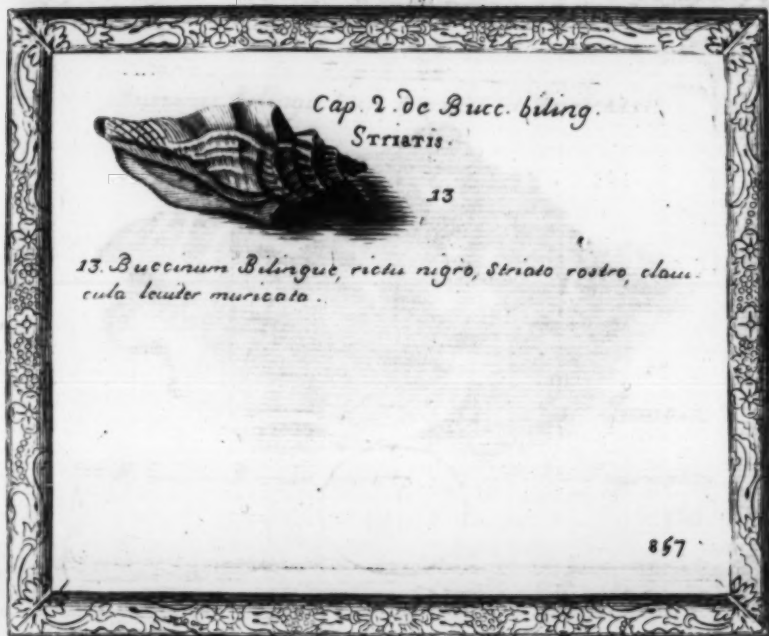 Cap. 2. de Bucc. biling.
STRIATIS.
13
13. Buccinum Bilingue, rictu nigro, Striato rostro, clavi-
cula leviter muricata.
857